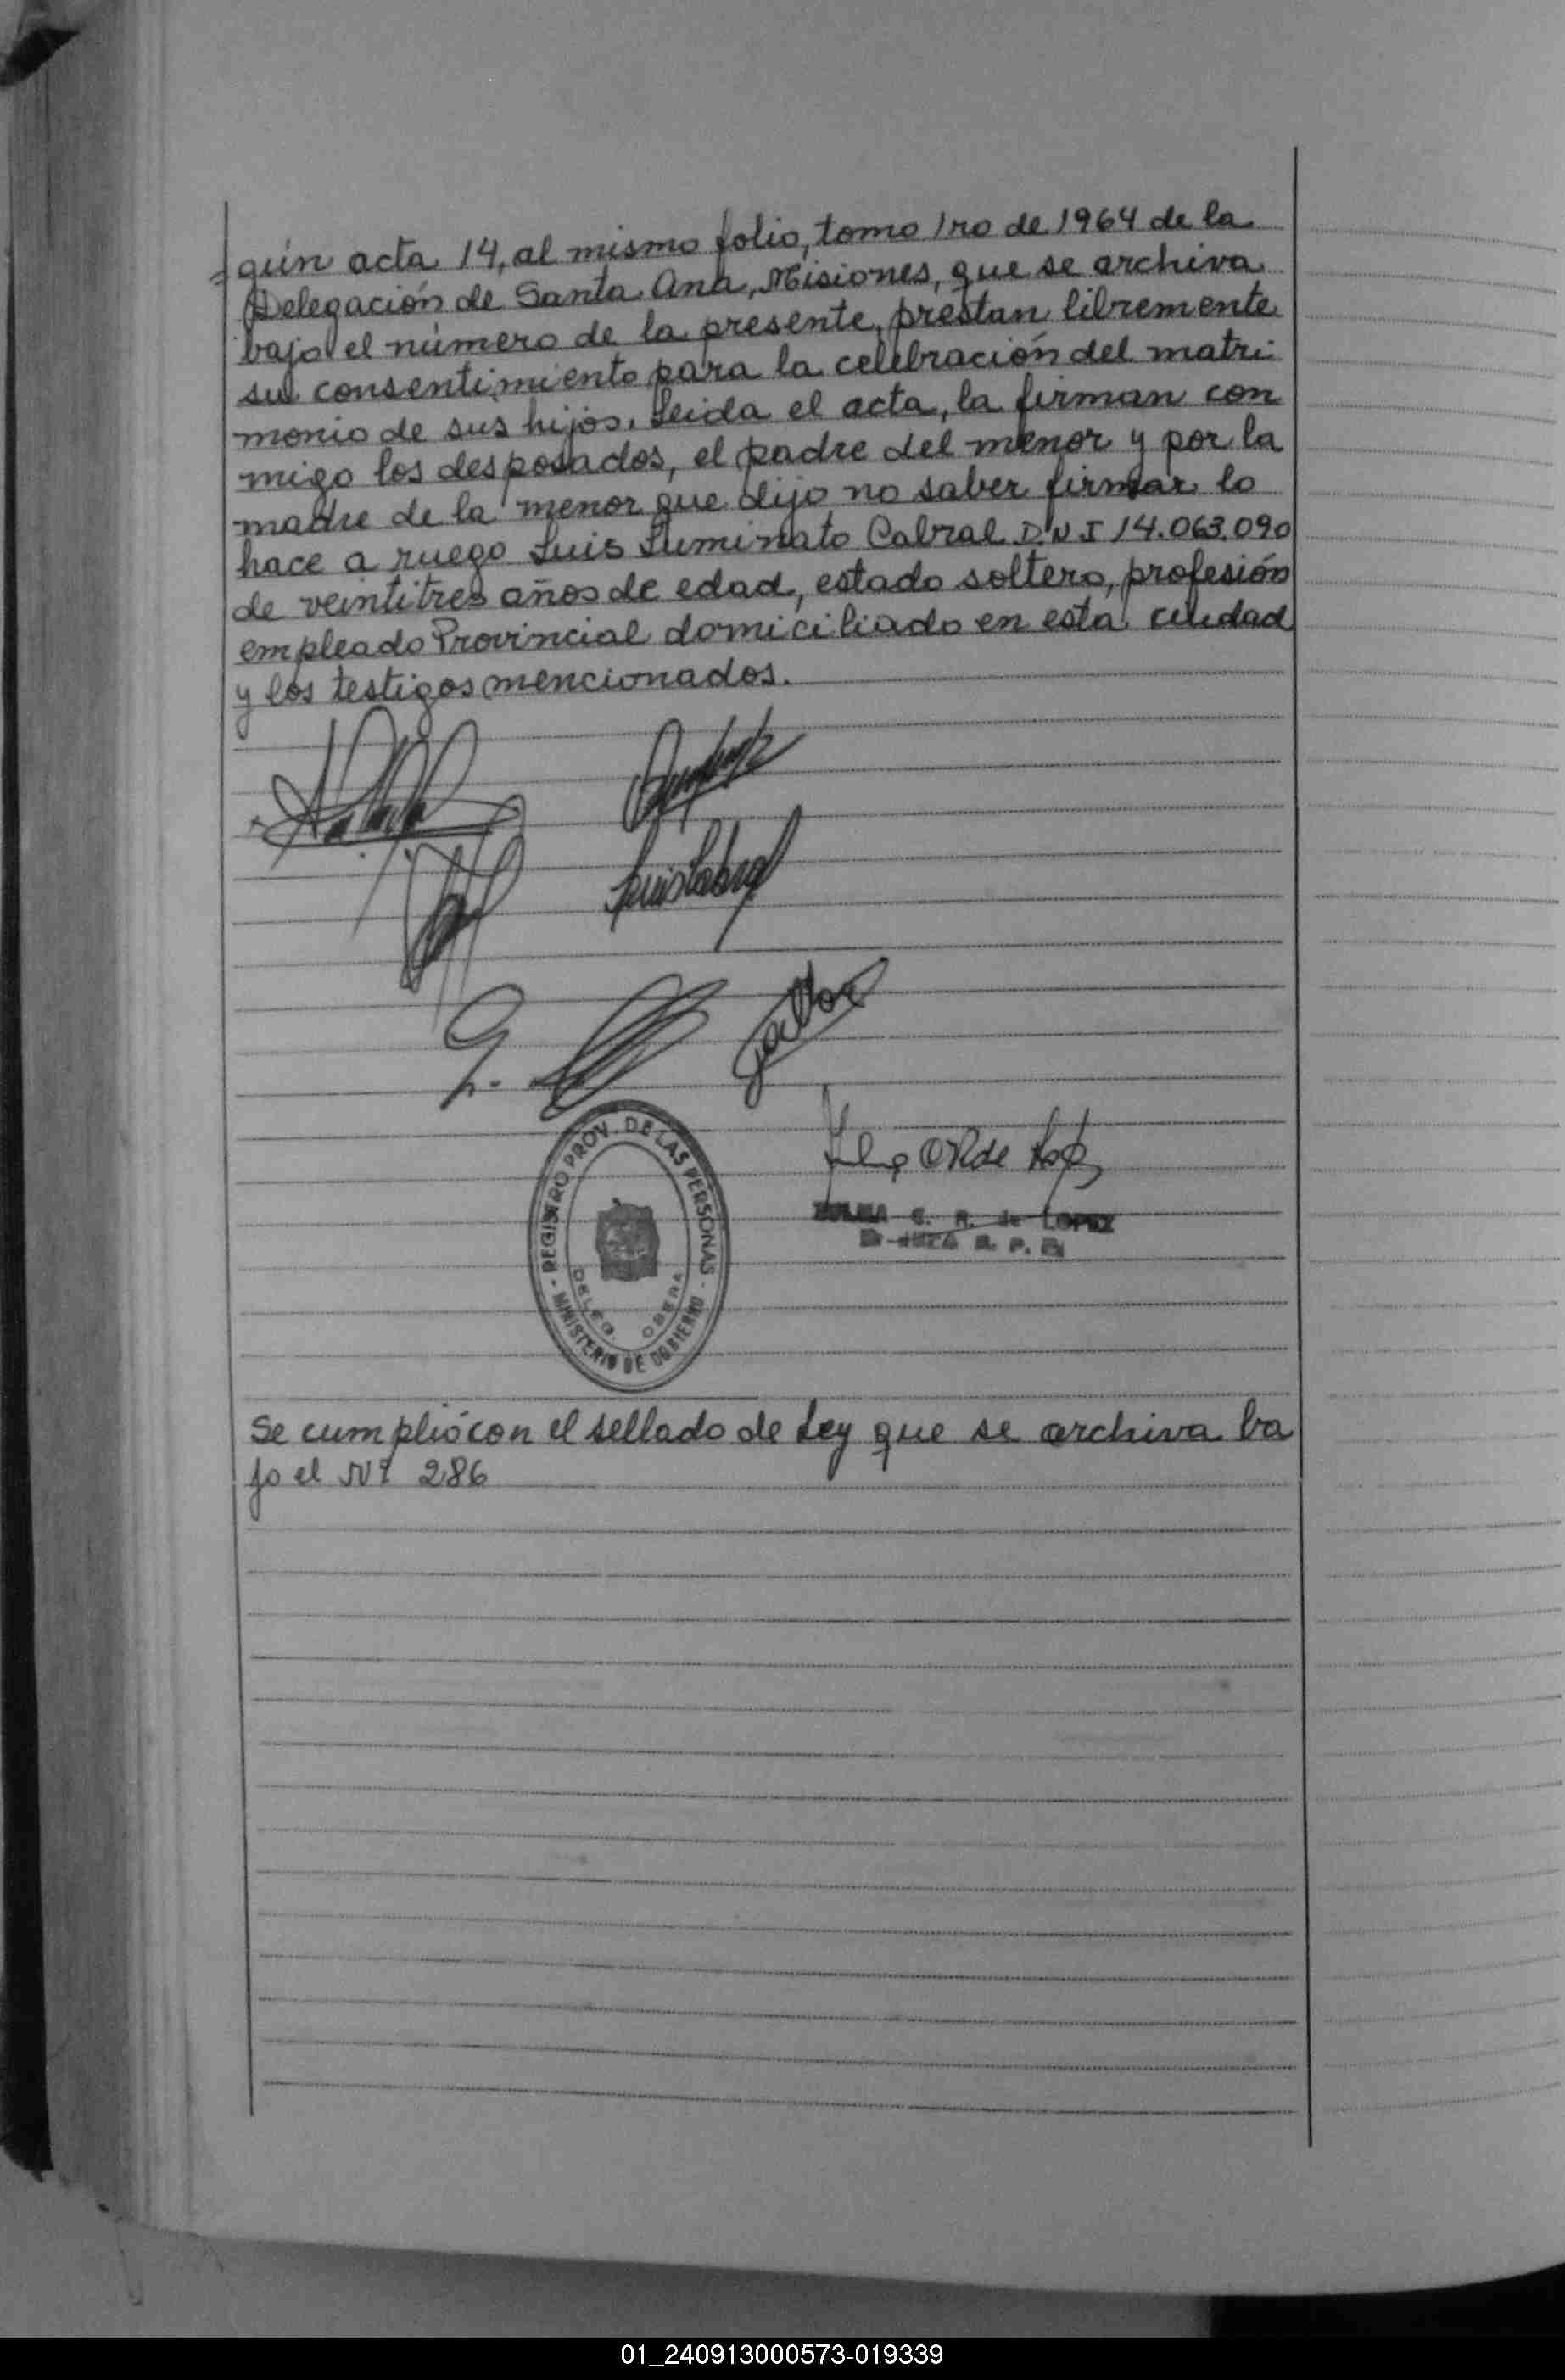 =gún acta 14, al mismo folio, tomo 1ro de 1964 de la
Delegación de Santa Ana, Misiones, que se archiva
bajo el número de la presente, prestan libremente
su consentimiento para la celebración del matri-
monio de sus hijos. Leida el acta, la firman con
migo los desposados, el padre del menor y por la
madre de la menor que dijo no saber firmar lo
hace a ruego Luis Luminato Cabral D.N.I 14.063.090
de veintitres años de edad, estado soltero, profesión
empleado Provincial domiciliado en esta ciudad
y los testigos mencionados.
Luis Cabral
REGISTRO PROV. DE LAS PERSONAS
DELEG. OBERA
MINISTERIO DE GOBIERNO
C. R. de LOPEZ
Se cumplió con el sellado de Ley que se archiva ba
jo el Nº 286
01_240913000573-019339